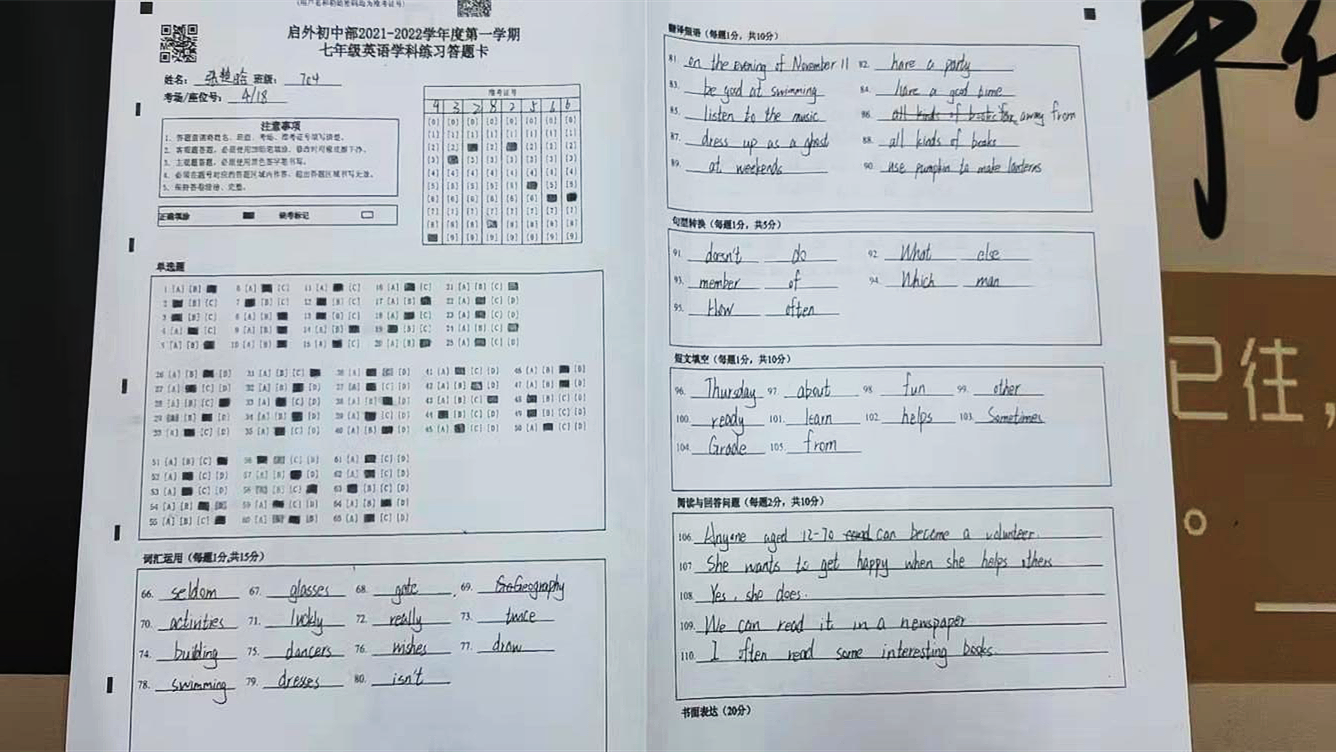 (用户名和初始密码均为准考证号)
启外初中部2021-2022学年度第一学期
七年级英语学科练习答题卡
姓名: 班级: 704
考场/座位号: 4/18
准考证号
4 3 2 8 2 5 6 6
注意事项
1. 答题前请将姓名、班级、考场、准考证号填写清楚。
2. 客观题答题,必须使用2B铅笔填涂,修改时用橡皮擦干净。
3. 主观题答题,必须使用黑色签字笔书写。
4. 必须在题号对应的答题区域内作答,超出答题区域书写无效。
5. 保持答卷清洁、完整。
正确填涂 缺考标记
单选题
词汇运用(每题1分,共15分)
66. seldom 67. glasses 68. gate 69. Geography
70. activities 71. luckly 72. really 73. twice
74. building 75. dancers 76. wishes 77. draw
78. swimming 79. dresses 80. isn't
翻译短语(每题1分,共10分)
81. on the evening of November 11 82. have a party
83. be good at swimming 84. have a good time
85. listen to the music 86. away from
87. dress up as a ghost 88. all kinds of books
89. at weekends 90. use pumpkin to make lanterns
句型转换(每题1分,共5分)
91. doesn't do 92. What else
93. member of 94. Which man
95. How often
短文填空(每题1分,共10分)
96. Thursday 97. about 98. fun 99. other
100. ready 101. learn 102. helps 103. Sometimes
104. Grade 105. from
阅读与回答问题(每题2分,共10分)
106. Anyone aged 12-70 can become a volunteer.
107 She wants to get happy when she helps others
108. Yes, she does.
109. We can read it in a newspaper
110. I often read some interesting books.
书面表达(20分)
已往,
。